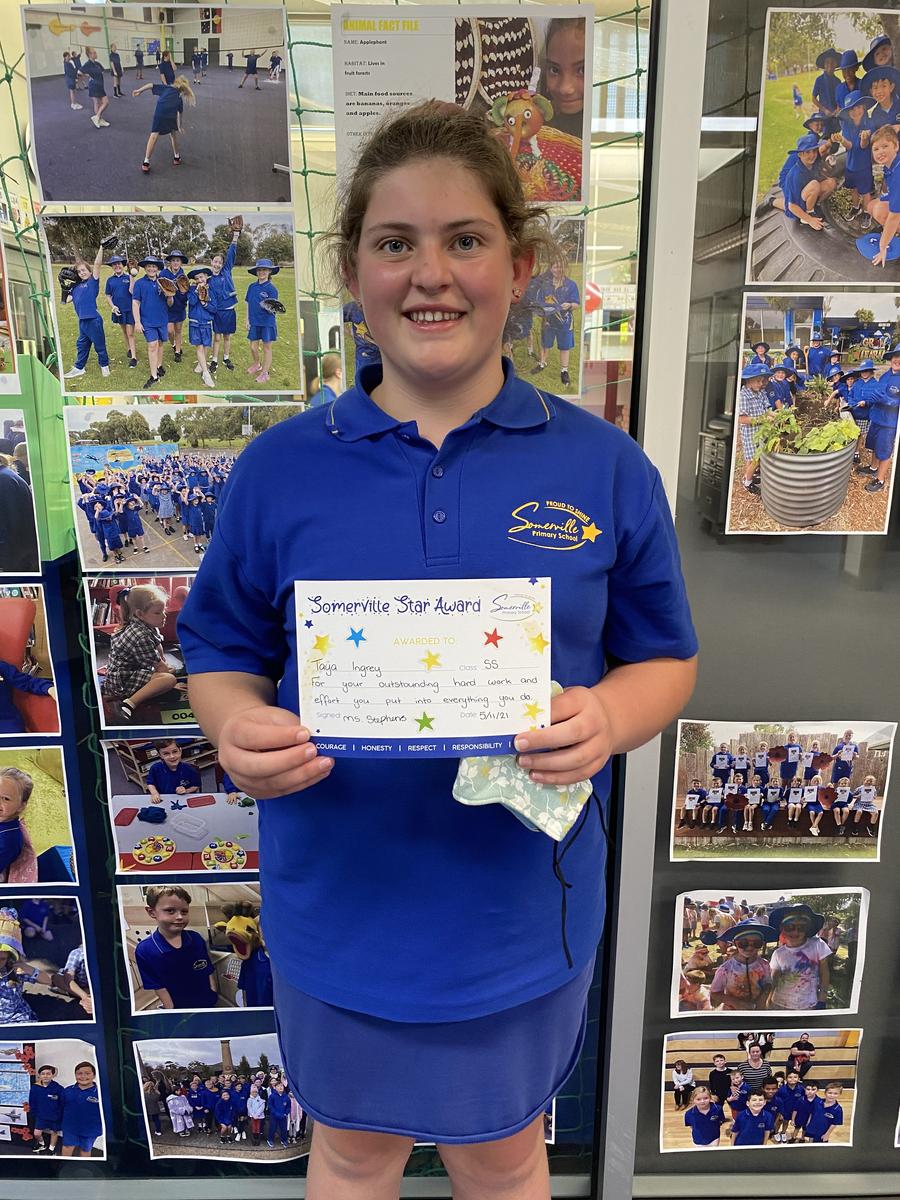 ANIMAL FACT FILE
NAME: Applephant
HABITAT: Lives in
fruit forests
DIET: Main food sources
are bananas, oranges
and apples.
PROUD TO SHINE
Somerville
Primary School
Somerville Star Award
Somerville
Primary School
AWARDED TO
Taija Ingrey Class SS
For your outstanding hard work and
effort you put into everything you do.
Signed Ms. Stephens Date 5/11/21
COURAGE | HONESTY | RESPECT | RESPONSIBILITY |
004